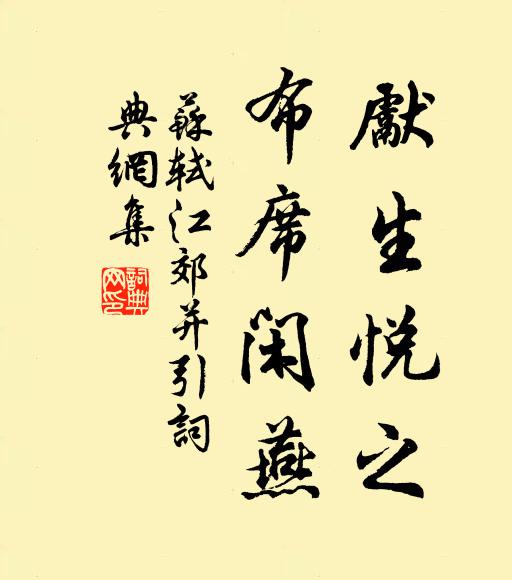 獻生悅之
布席閑燕
蘇軾江郊并引詞
典網集
詞典网印